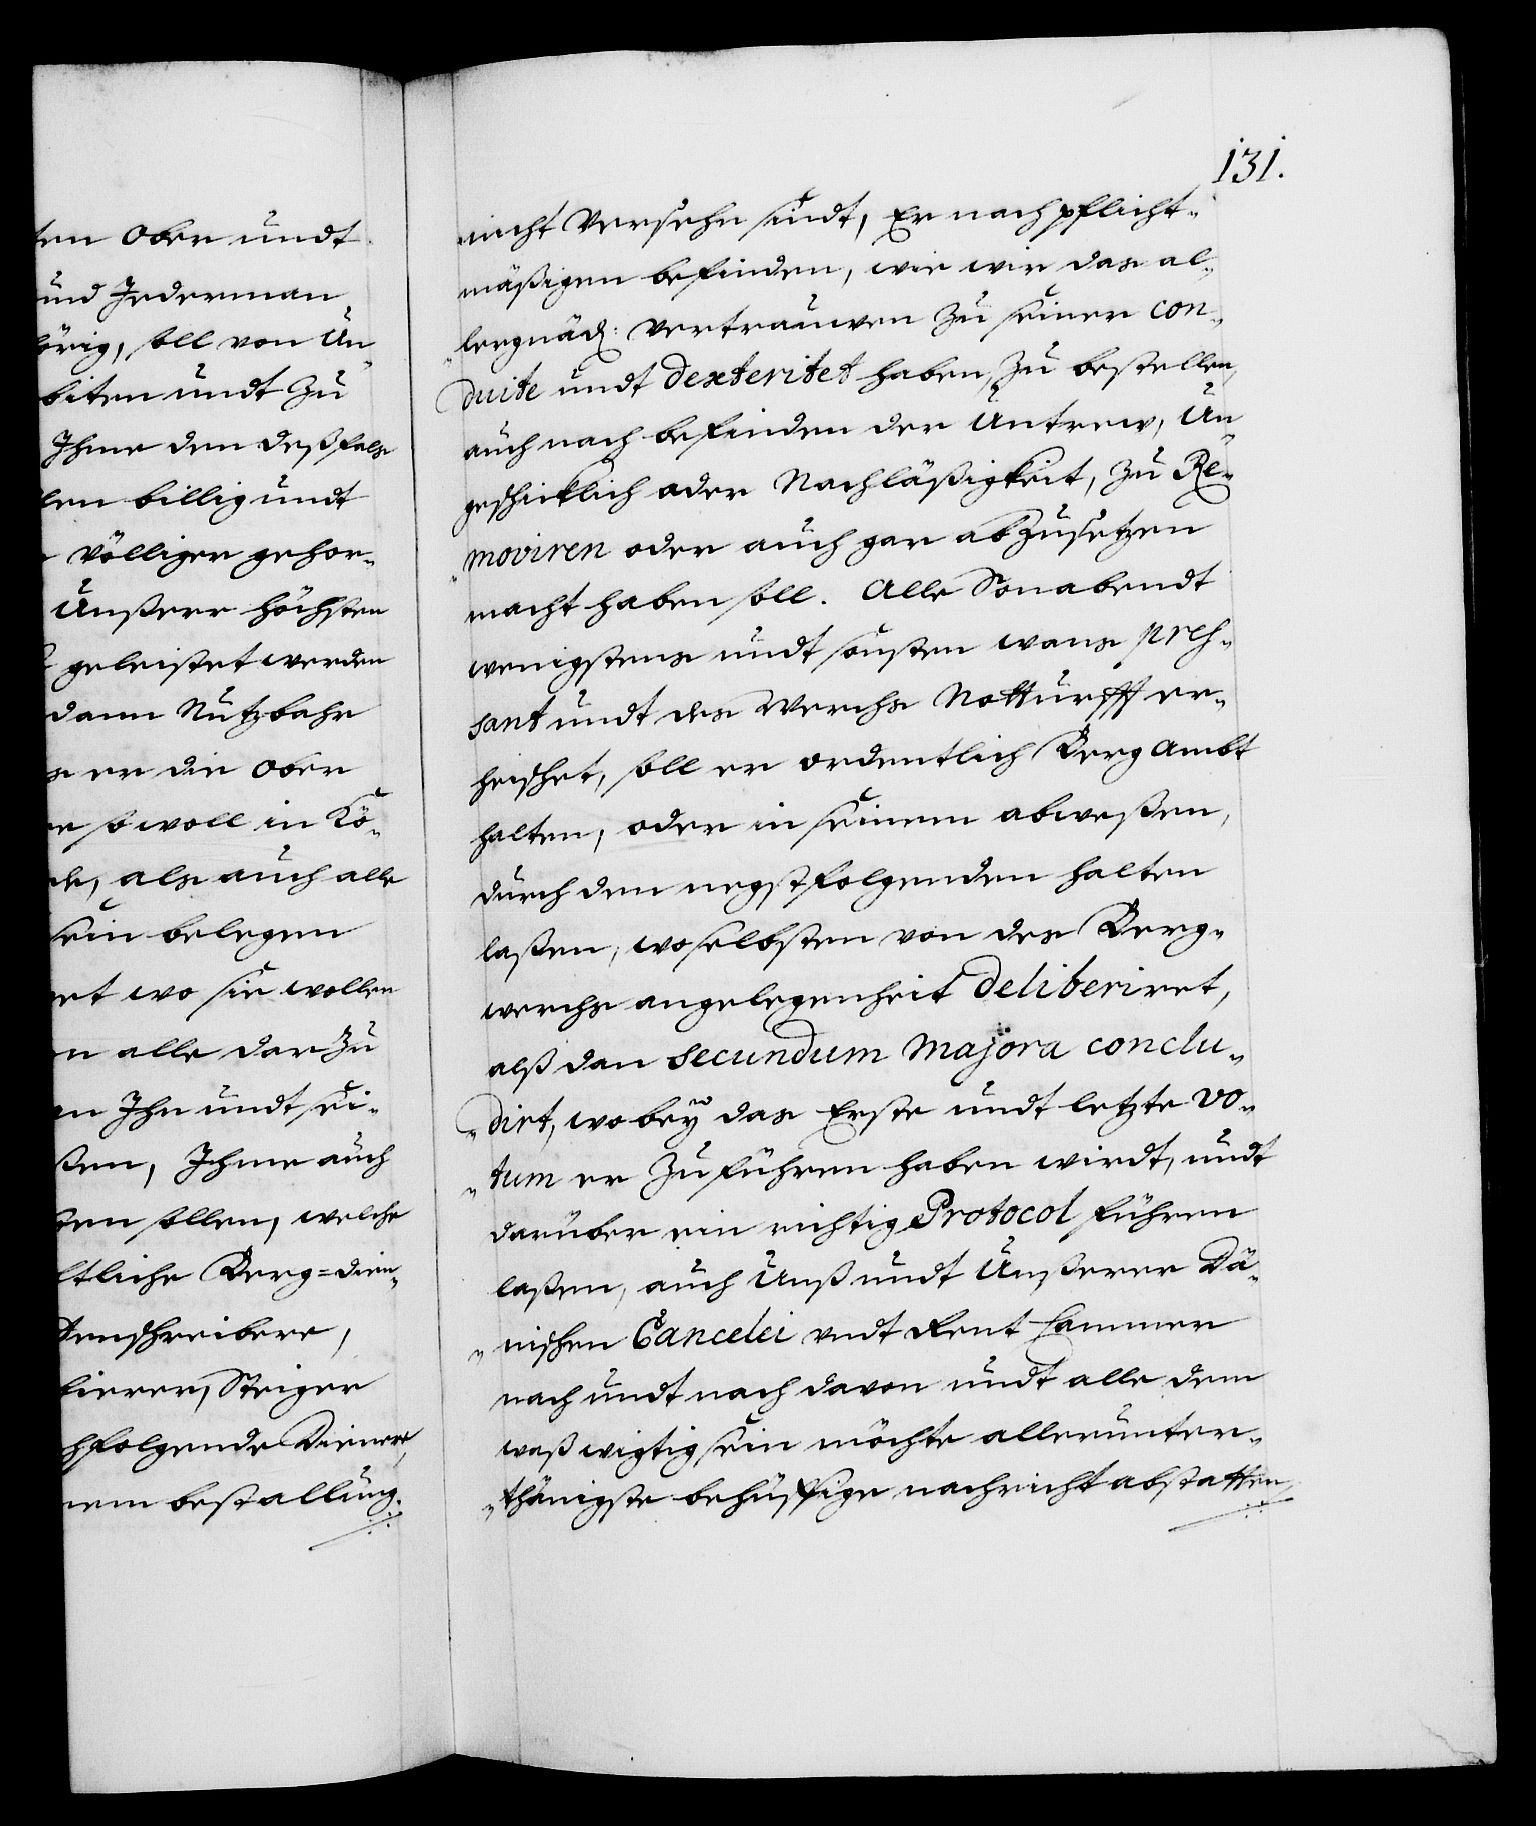 ten Ober undt
und Jederman
hörig, soll von Un¬
biten undt Zu
Ihme den deßfals
len billig undt
völliger gehor¬
Unßerr höchsten
geleistet werden
dann Nutzbahr
er die Ober
so woll in Kö¬
als auch alle
sein belegen
wo sie wollen
n alle dar Zu
en Ihn undt sei¬
ßen, Ihme auch
ten sollen, welche
ltliche Berg=dien¬
tenschreibere,
tierer, Steiger
hfolgende Dienere,
nem bestallung.
131.
nicht Versehn sindt, Er nach pflicht¬
mäßigen befinden, wie wir das al¬
lergnäd: Vertrauwen zu seiner con¬
duite undt dexteritet haben, Zu bestellen,
auch nach befinden der Untrew, Un¬
geschicklich oder Nachläßigkeit, zu Re¬
moviren oder auch gar abZusetzen
macht haben soll. Alle Sonabendt
wenigstens undt sonsten wans pres¬
sant undt des Werchs Notturfft er¬
heischet, soll er ordentlich Berg Ambt
halten, oder in seinem abweßen,
durch den negstfolgenden halten
laßen, woselbsten von des Berg¬
werchs angelegenheit deliberiret,
alß dan secundum Majora conclu¬
dirt, wobey das Erste undt letzte vo¬
tum er Zu führen haben wirdt, undt
darüber ein richtig Protocol führen
laßen, auch Unß undt Unßerer Dä¬
nischen Cancelei undt Rent Cammer
nach undt nach davon undt alle dem
waß wigtig sein möchte allerunter¬
thänigste behuffige nachricht abstatten,